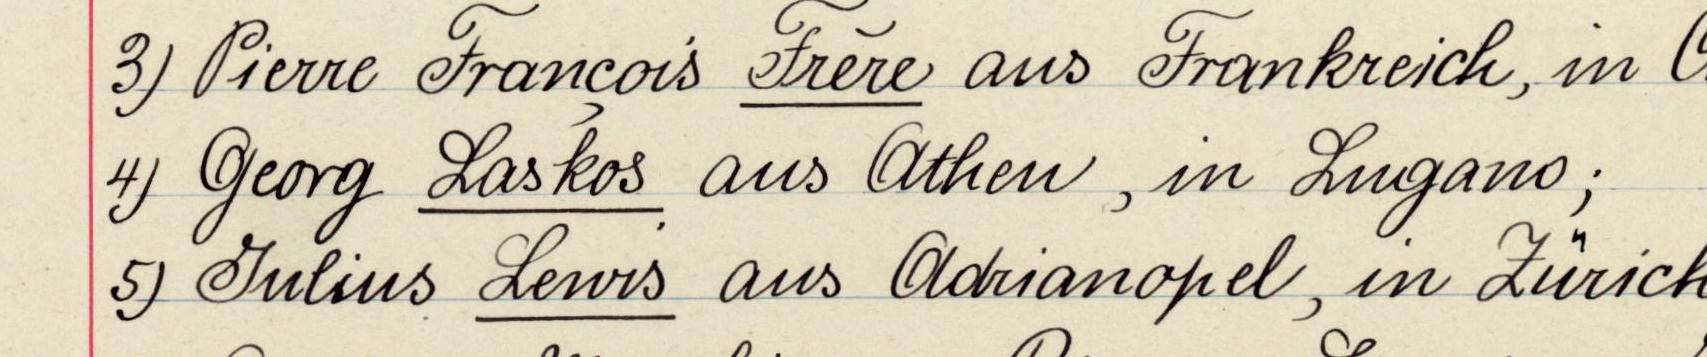 3) Pierre François Frère aus Frankreich, in
4) Georg Laskos aus Athen, in Lugano;
5) Julius Lewis aus Adrianopel, in Zürich